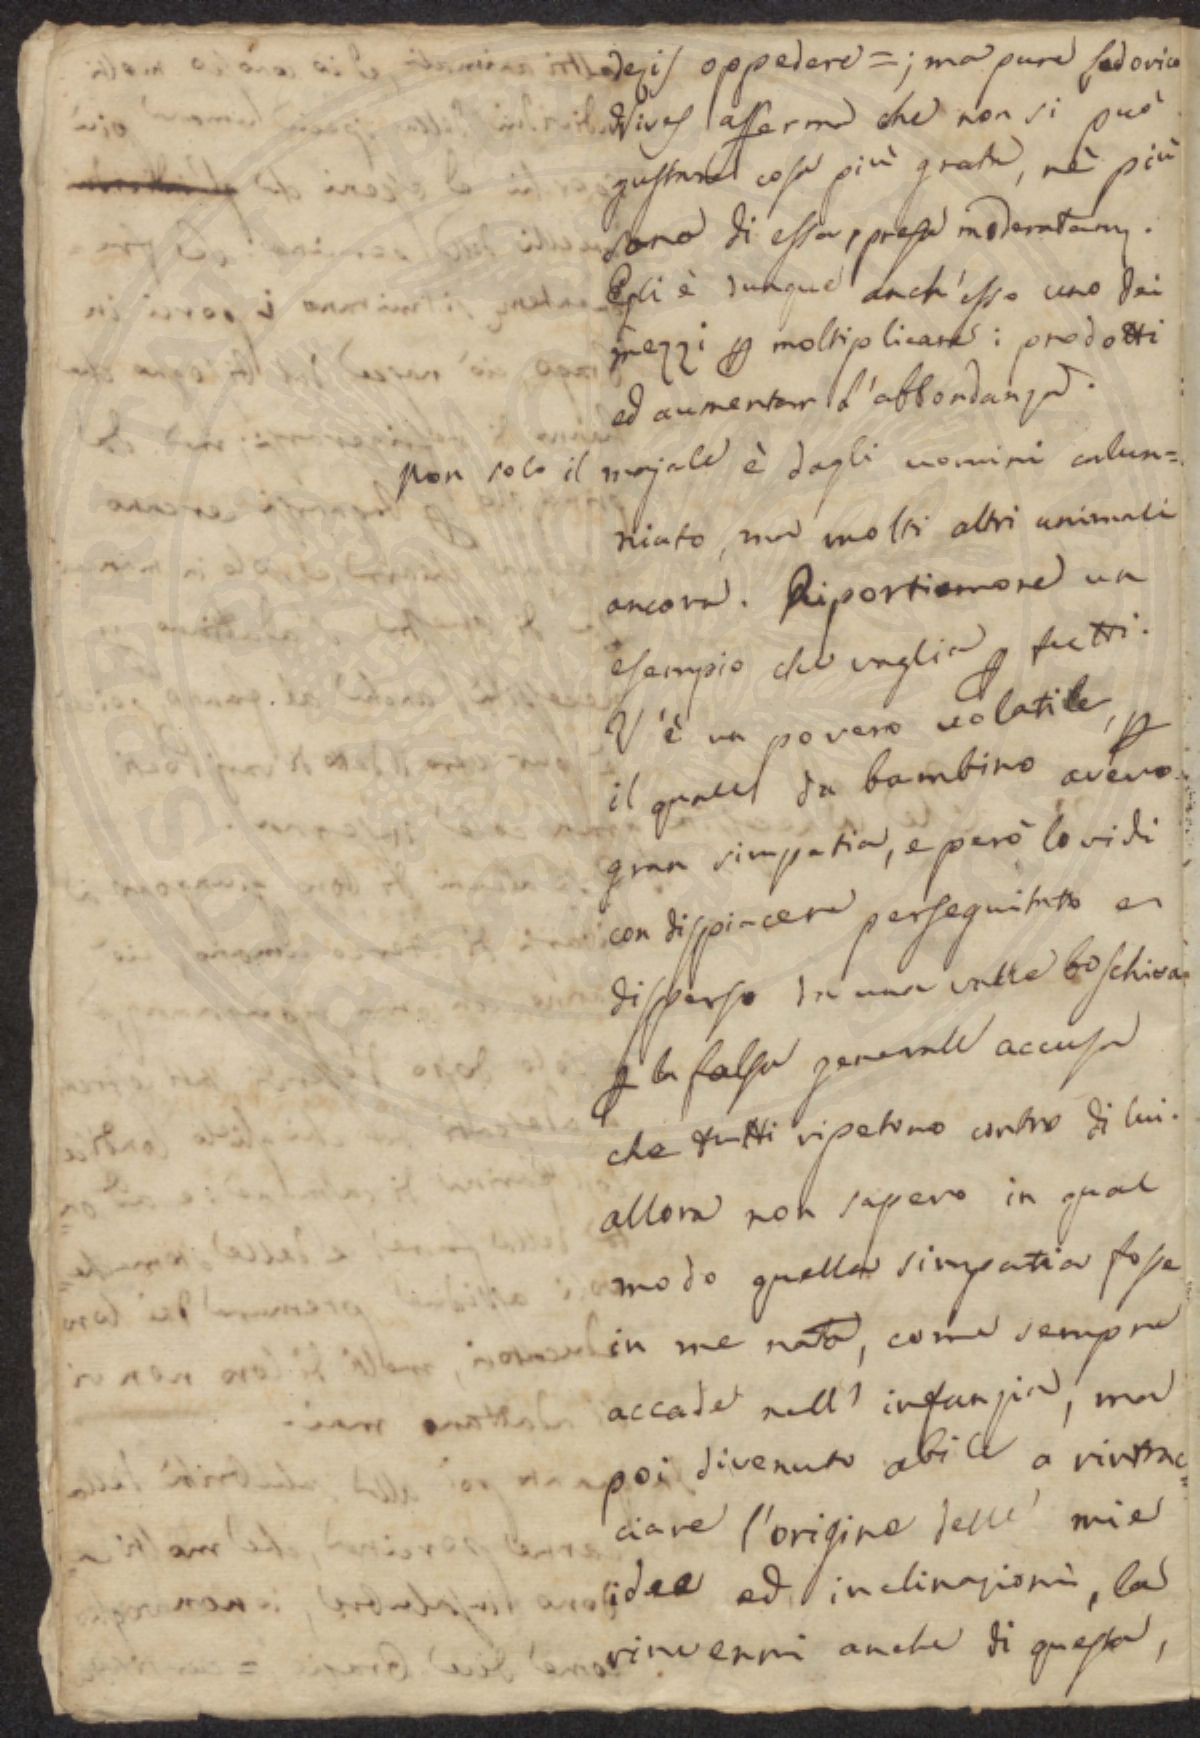 oppedere =; ma pure Lodovico
Vives afferma che non si può
gustare cosa più grata, nè più
sana di essa, presa moderatam.
Egli è dunque anch'esso uno dei
mezzi p moltiplicare i prodotti
ed aumentar l'abbondanza.
Non solo il majale è dagli uomini calun=
niato, ma molti altri animali
ancora. Riportiamone un
esempio che vaglia p tutti.
V'è un povero volatile, p
il quale da bambino avevo
gran simpatia, e però lo vidi
con dispiacere perseguitato e
disperso da una valle boschiva
p la falsa generale accusa
che tutti ripetono contro di lui.
allora non sapevo in qual
modo quella simpatia fosse
in me nata, come sempre
accade nell'infanzia, ma
poi divenuto abile a rintrac=
ciare l'origine delle mie
idee ed inclinazioni, la
rinvenni anche di questa,